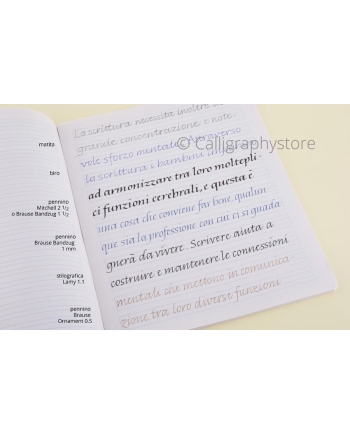 La scrittura necessita inoltre di
grande concentrazione e note-
vole sforzo mentale. Attraverso
la scrittura i bambini
ad armonizzare tra loro moltepli-
ci funzioni cerebrali, e questa è
una cosa che conviene far bene, qualun-
que sia la professione con cui ci si guada-
gnerà da vivere. Scrivere aiuta a
costruire e mantenere le connessioni
mentali che mettono in comunica
zione tra loro diverse funzioni
© Calligraphystore
matita
biro
pennino
Mitchell 2 1/2
o Brause Bandzug 1 1/2
pennino
Brause Bandzug
1 mm
stilografica
Lamy 1.1
pennino
Brause
Ornament 0.5